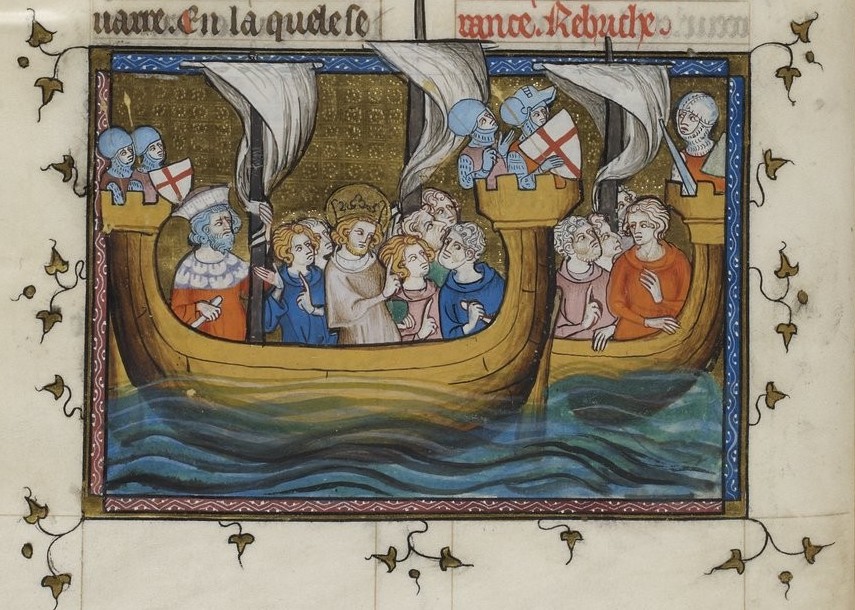 uarre. En laquele se
rance. Rebriche.